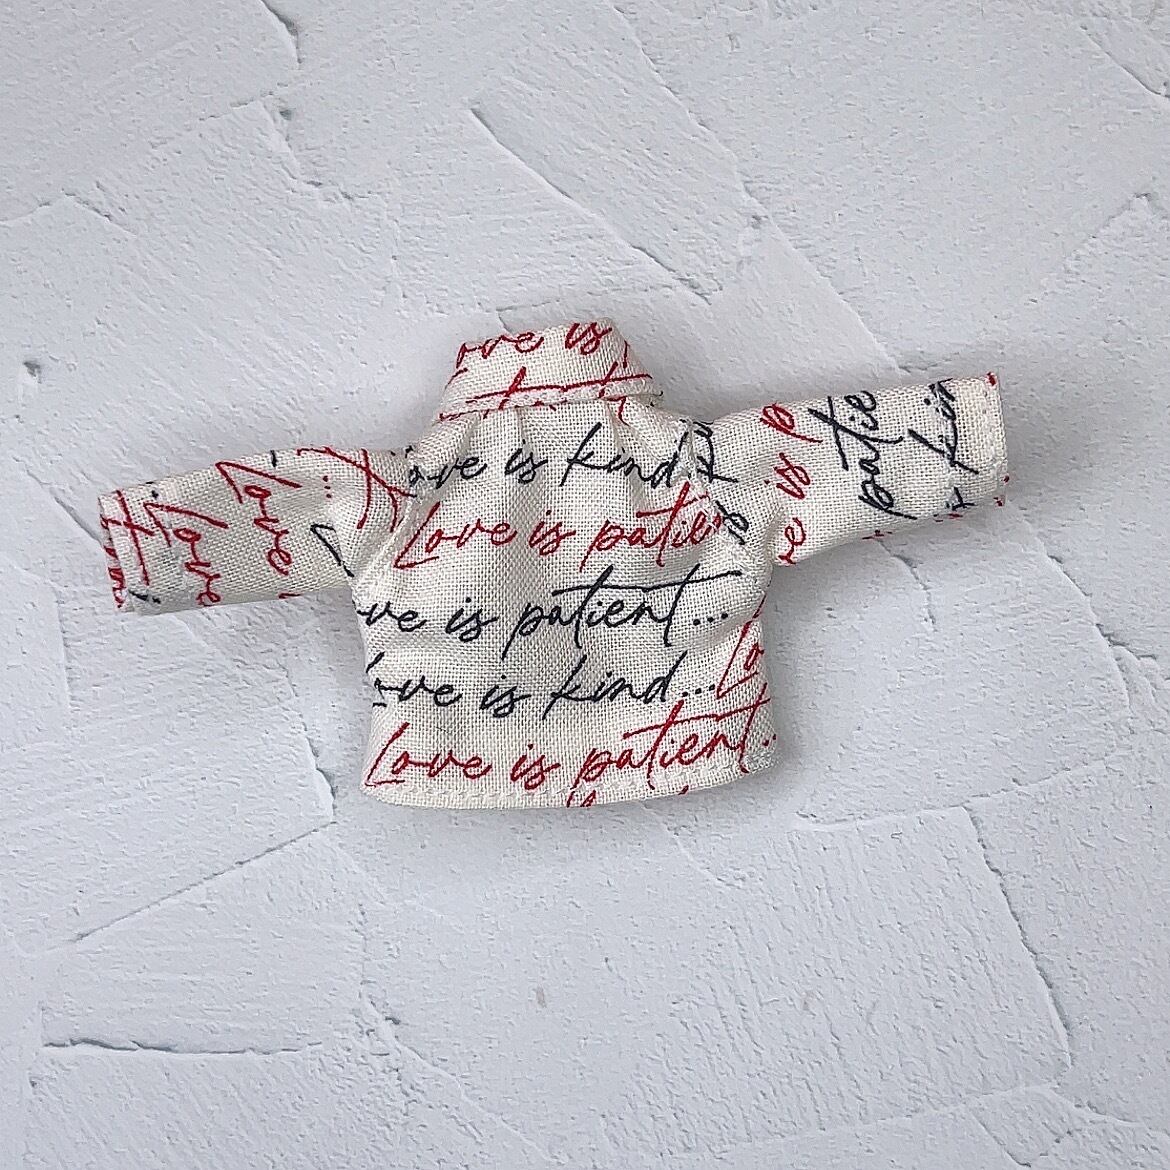 ove is
ove is kind..
Love is patie
ve is patient...
ove is kind...Lo
Love is patient..
Love
Love
is p
patie
kin